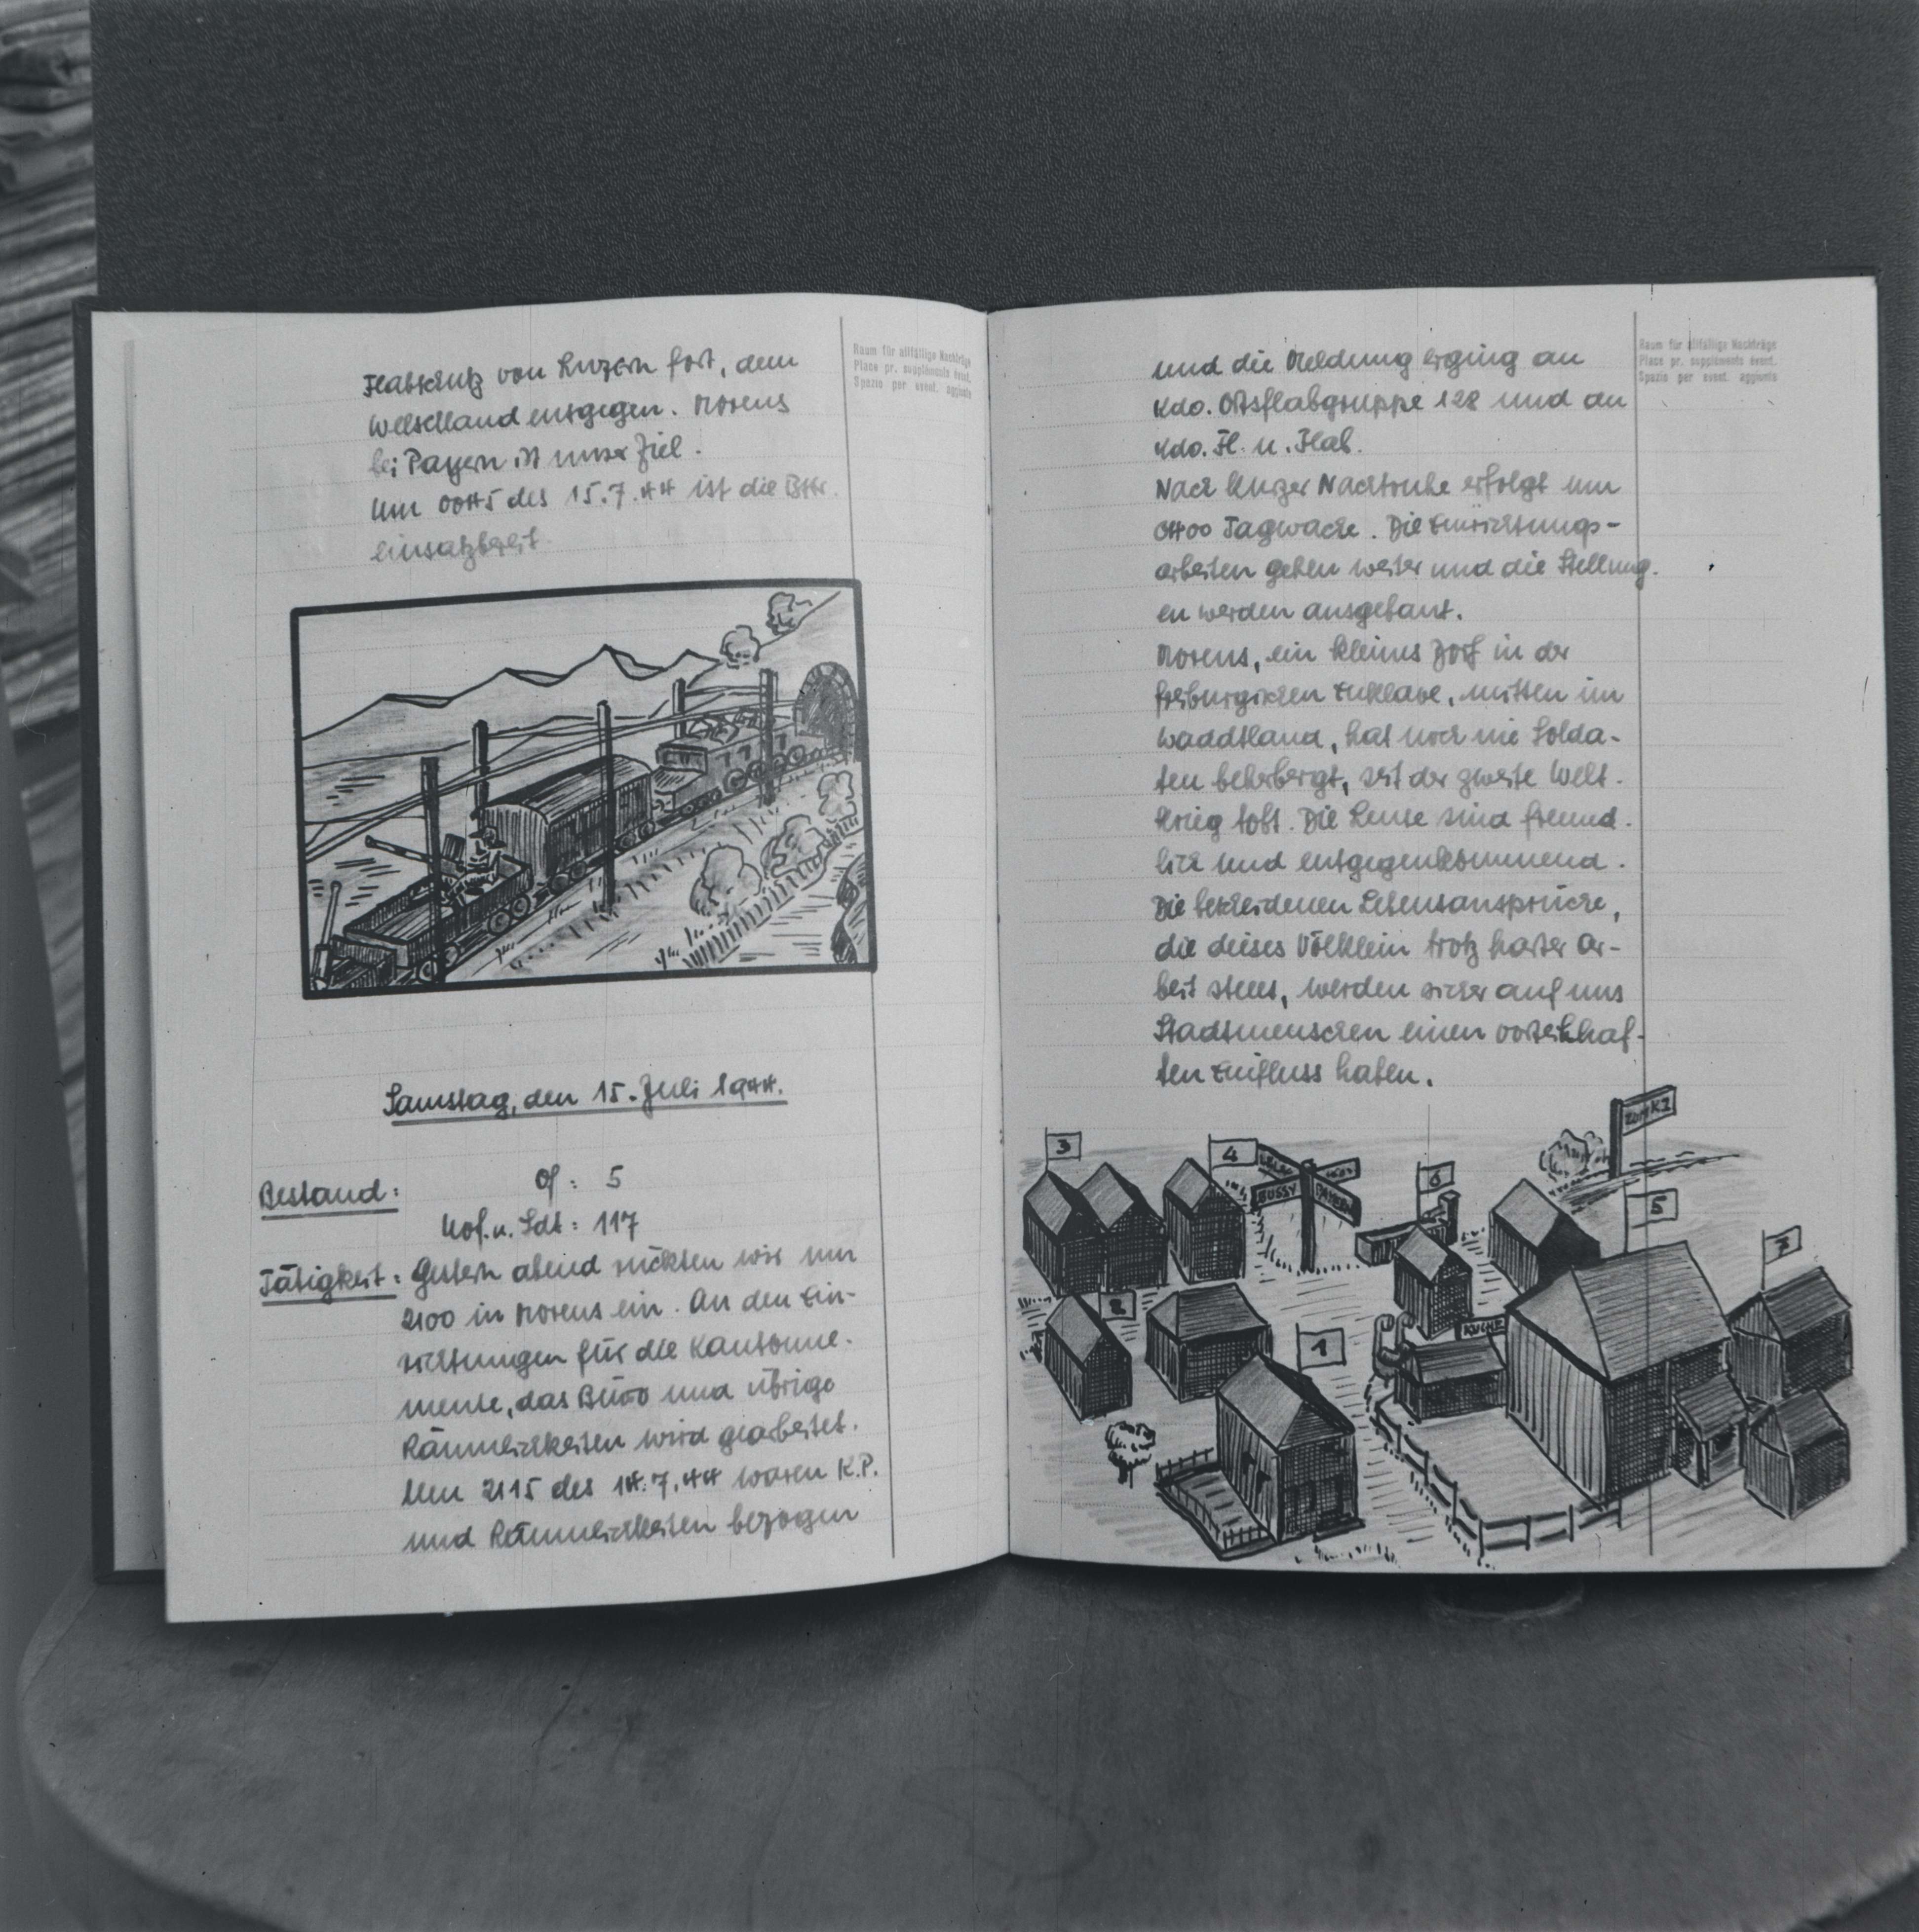 Flabschutz von Luzern fort, dem
Welschland entgegen. Morens
bei Payern ist unser Ziel.
Um 0045 des 15.7.44 ist die Bttr.
einsatzbereit.
Raum für allfällige Nachträge
Place pr. suppléments évent.
Spazio per event. aggiunte
Samstag, den 15. Juli 1944.
Bestand: Of: 5
Uof. u. Sdt: 117
Tätigkeit: Gestern abend rückten wir um
2100 in Morens ein. An den Ein-
richtungen für die Kantonne-
mente, das Büro und übrige
Räumlichkeiten wird gearbeitet.
Um 2115 des 14.7.44 waren K.P.
und Räumlichkeiten bezogen
und die Meldung erging an
Kdo. Ortsflabgruppe 128 und an
Kdo. Fl. u. Flab.
Nach kurzer Nachtruhe erfolgt um
0400 Tagwache. Die Einrichtungs-
arbeiten gehen weiter und die Stellung-
en werden ausgebaut.
Morens, ein kleines Dorf in der
freiburgischen Enklave, mitten im
Waadtland, hat noch nie Solda-
ten beherbergt, seit der zweite Welt-
krieg tobt. Die Leute sind freund-
lich und entgegenkommend.
Die bescheidenen Lebensansprüche,
die dieses Völklein trotz harter Ar-
beit stellt, werden sicher auf uns
Stadtmenschen einen vorteilhaf-
ten Einfluss haben.
Raum für allfällige Nachträge
Place pr. suppléments évent.
Spazio per event. aggiunte
ZUM K1
3
4
BUSSY
PAYERN
6
5
7
2
1
KÜCHE